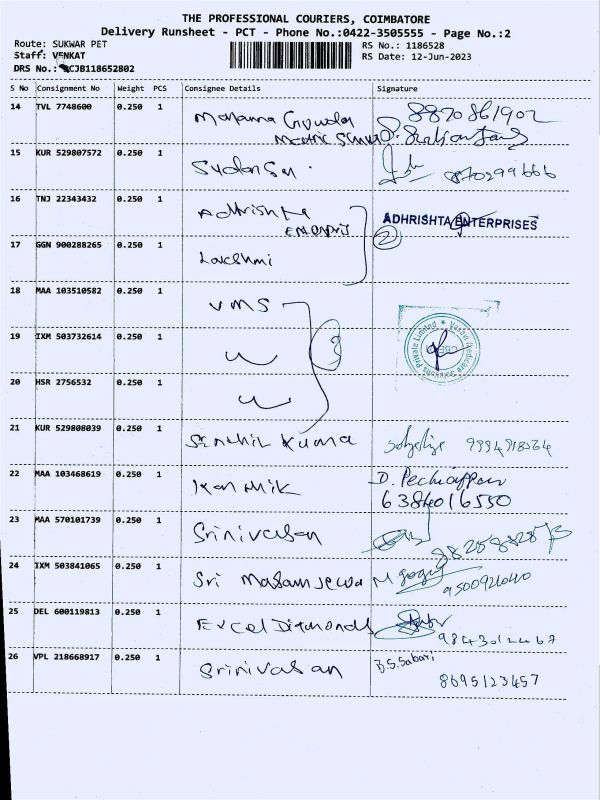 THE PROFESSIONAL COURIERS, COIMBATORE
Delivery Runsheet - PCT - Phone No.:0422-3505555 - Page No.:2
Route: SUKWAR PET
RS No.: 1186528
Staff: VENKAT
RS Date: 12-Jun-2023
DRS No.: CJB118652802
S No Consignment No Weight PCS Consignee Details Signature
14 TVL 7748600 0.250 1 8870861902
15 KUR 529807572 0.250 1
16 TNJ 22343432 0.250 1 Adhrishta ADHRISHTA ENTERPRISES
2
17 GGN 900288265 0.250 1 Lakshmi
18 MAA 103510582 0.250 1 VMS
19 IXM 503732614 0.250 1 3
20 HSR 2756532 0.250 1
21 KUR 529808039 0.250 1 Senthil Kuma
22 MAA 103468619 0.250 1 Karthik
6384016550
23 MAA 570101739 0.250 1 Srinivasan
24 IXM 503841065 0.250 1 Sri
25 DEL 600119813 0.250 1 Excel Diamonds
26 VPL 218668917 0.250 1 Srinivasan B.S.Sabari
8695123457